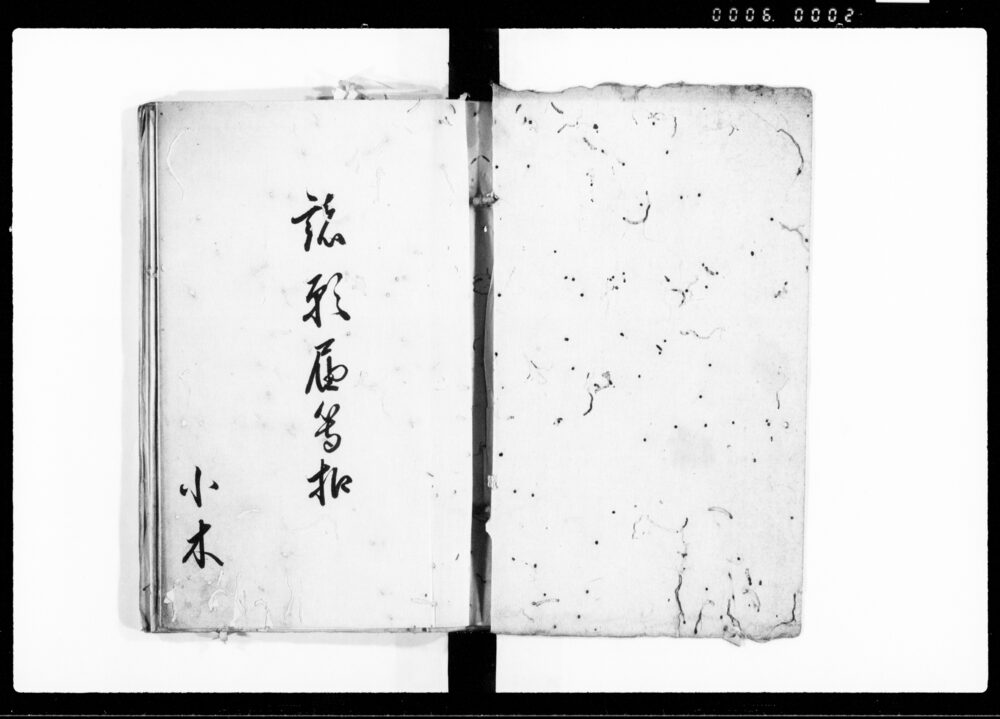 0006 0002
諸願届等扣
小木